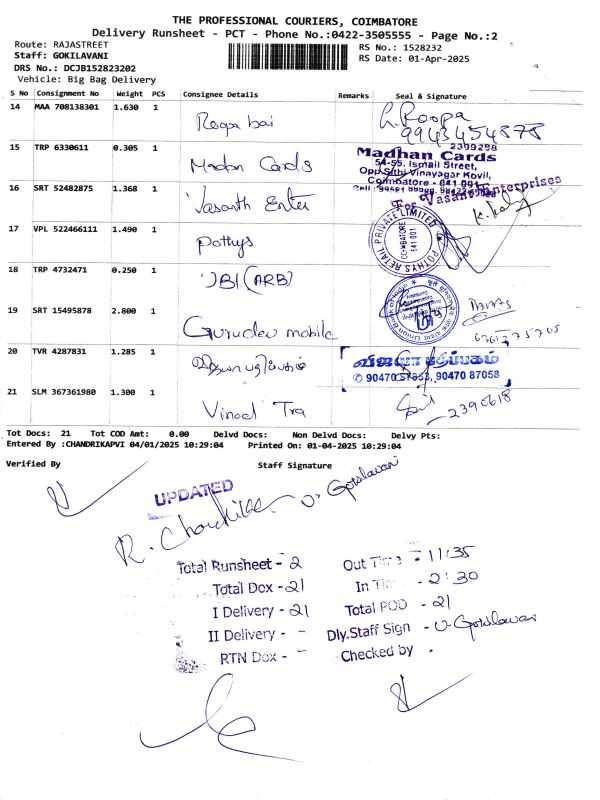 THE PROFESSIONAL COURIERS, COIMBATORE
Delivery Runsheet - PCT - Phone No.:0422-3505555 - Page No.:2
Route: RAJASTREET
RS No.: 1528232
Staff: GOKILAVANI
RS Date: 01-Apr-2025
DRS No.: DCJB152823202
Vehicle: Big Bag Delivery
S No Consignment No Weight PCS Consignee Details Remarks Seal & Signature
14 MAA 708138301 1.630 1 Roopa bai R. Roopa
9943454878
15 TRP 6330611 0.305 1 Madan Cards 2399298
Madhan Cards
54-55, Ismail Street,
Opp.Sithi Vinayagar Kovil,
Coimbatore - 641 001
16 SRT 52482875 1.368 1 Vasanth Enter For Vasanth Enterprises
17 VPL 522466111 1.490 1 Pothys POTHYS RETAIL PRIVATE LIMITED
COIMBATORE
641 001
18 TRP 4732471 0.250 1 UBI (ARB)
19 SRT 15495878 2.800 1 Gurudev mobile
20 TVR 4287831 1.285 1 விஜயா பதிப்பகம் விஜயா பதிப்பகம்
90470 87053, 90470 87058
21 SLM 367361980 1.300 1 Vinod Tra 2390618
Tot Docs: 21 Tot COD Amt: 0.00 Delvd Docs: Non Delvd Docs: Delvy Pts:
Entered By :CHANDRIKAPVI 04/01/2025 10:29:04 Printed On: 01-04-2025 10:29:04
Verified By Staff Signature
UPDATED
R. Chandrika V. Gokilavani
Total Runsheet - 2 Out Time - 11:35
Total Dox - 21 In Time - 2:30
I Delivery - 21 Total POD - 21
II Delivery - - Dly.Staff Sign - V. Gokilavani
RTN Dox - - Checked by .